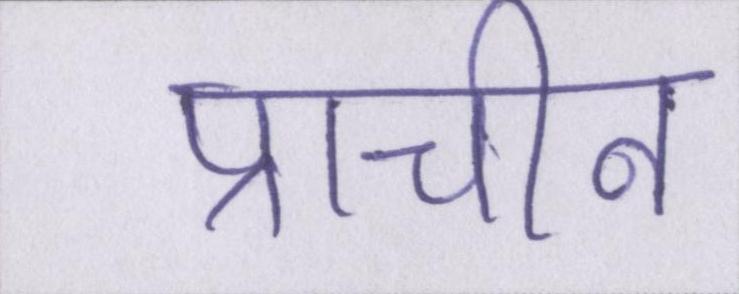 प्राचीन